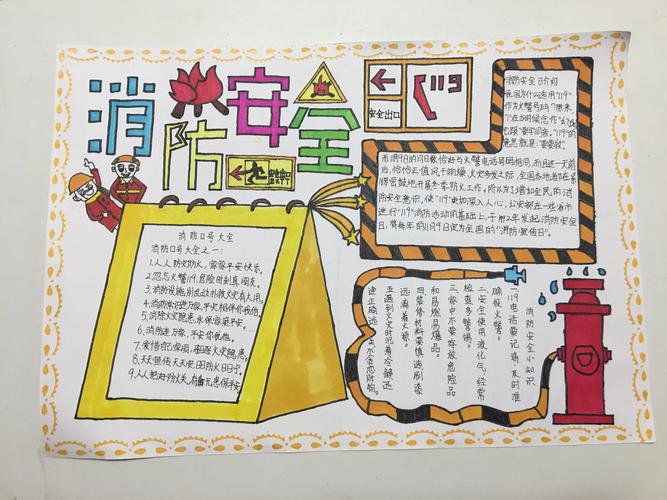 消防安全
安全出口
119
EXIT
消防安全日介绍
我国为什么选用"119"
作为火警号码?原来,
"1"在古时候念作"幺",
它跟"要"字同音。"119"的
意思就是:"要要救"。
而11月9日的月日数恰好与火警电话号码相同,而且这一天前
后,恰恰正值风干物燥、火灾多发之际,全国各地都在紧
锣密鼓地开展冬季防火工作。所以为了增加全民的消
防安全意识,使"119"更加深入人心,公安部在一些省市
进行"119"消防活动的基础上,于
年发起消防安全
日,将每年的11月9日定为全国的"消防宣传日"。
消防口号大全
消防口号大全之一:
1.人人防火防火,家家平安快乐。
2.忽忘火警119,危险时刻真朋友。
3.消防设施别乱动,扑救火灾有大用。
4.消防常识进万家,平安相伴你我他。
5.消除火灾隐患,永保家庭平安。
6.消防进万家,平安你我他。
7.爱惜自己家园,杜绝火灾隐患。
8.天天平安天天安,日日防火日日宁。
9.人人把好防火关,有备无患保平安
消防安全小知识
一、119电话要记清,及时准
确报火警。
二、安全使用液化气,经常
检查多警惕。
三、家中不要存放危险品
和易燃易爆品。
四、装修材料要慎选,刷漆
远离着火源。
五、遇到火灾时沉着冷静,迅
速正确逃生,